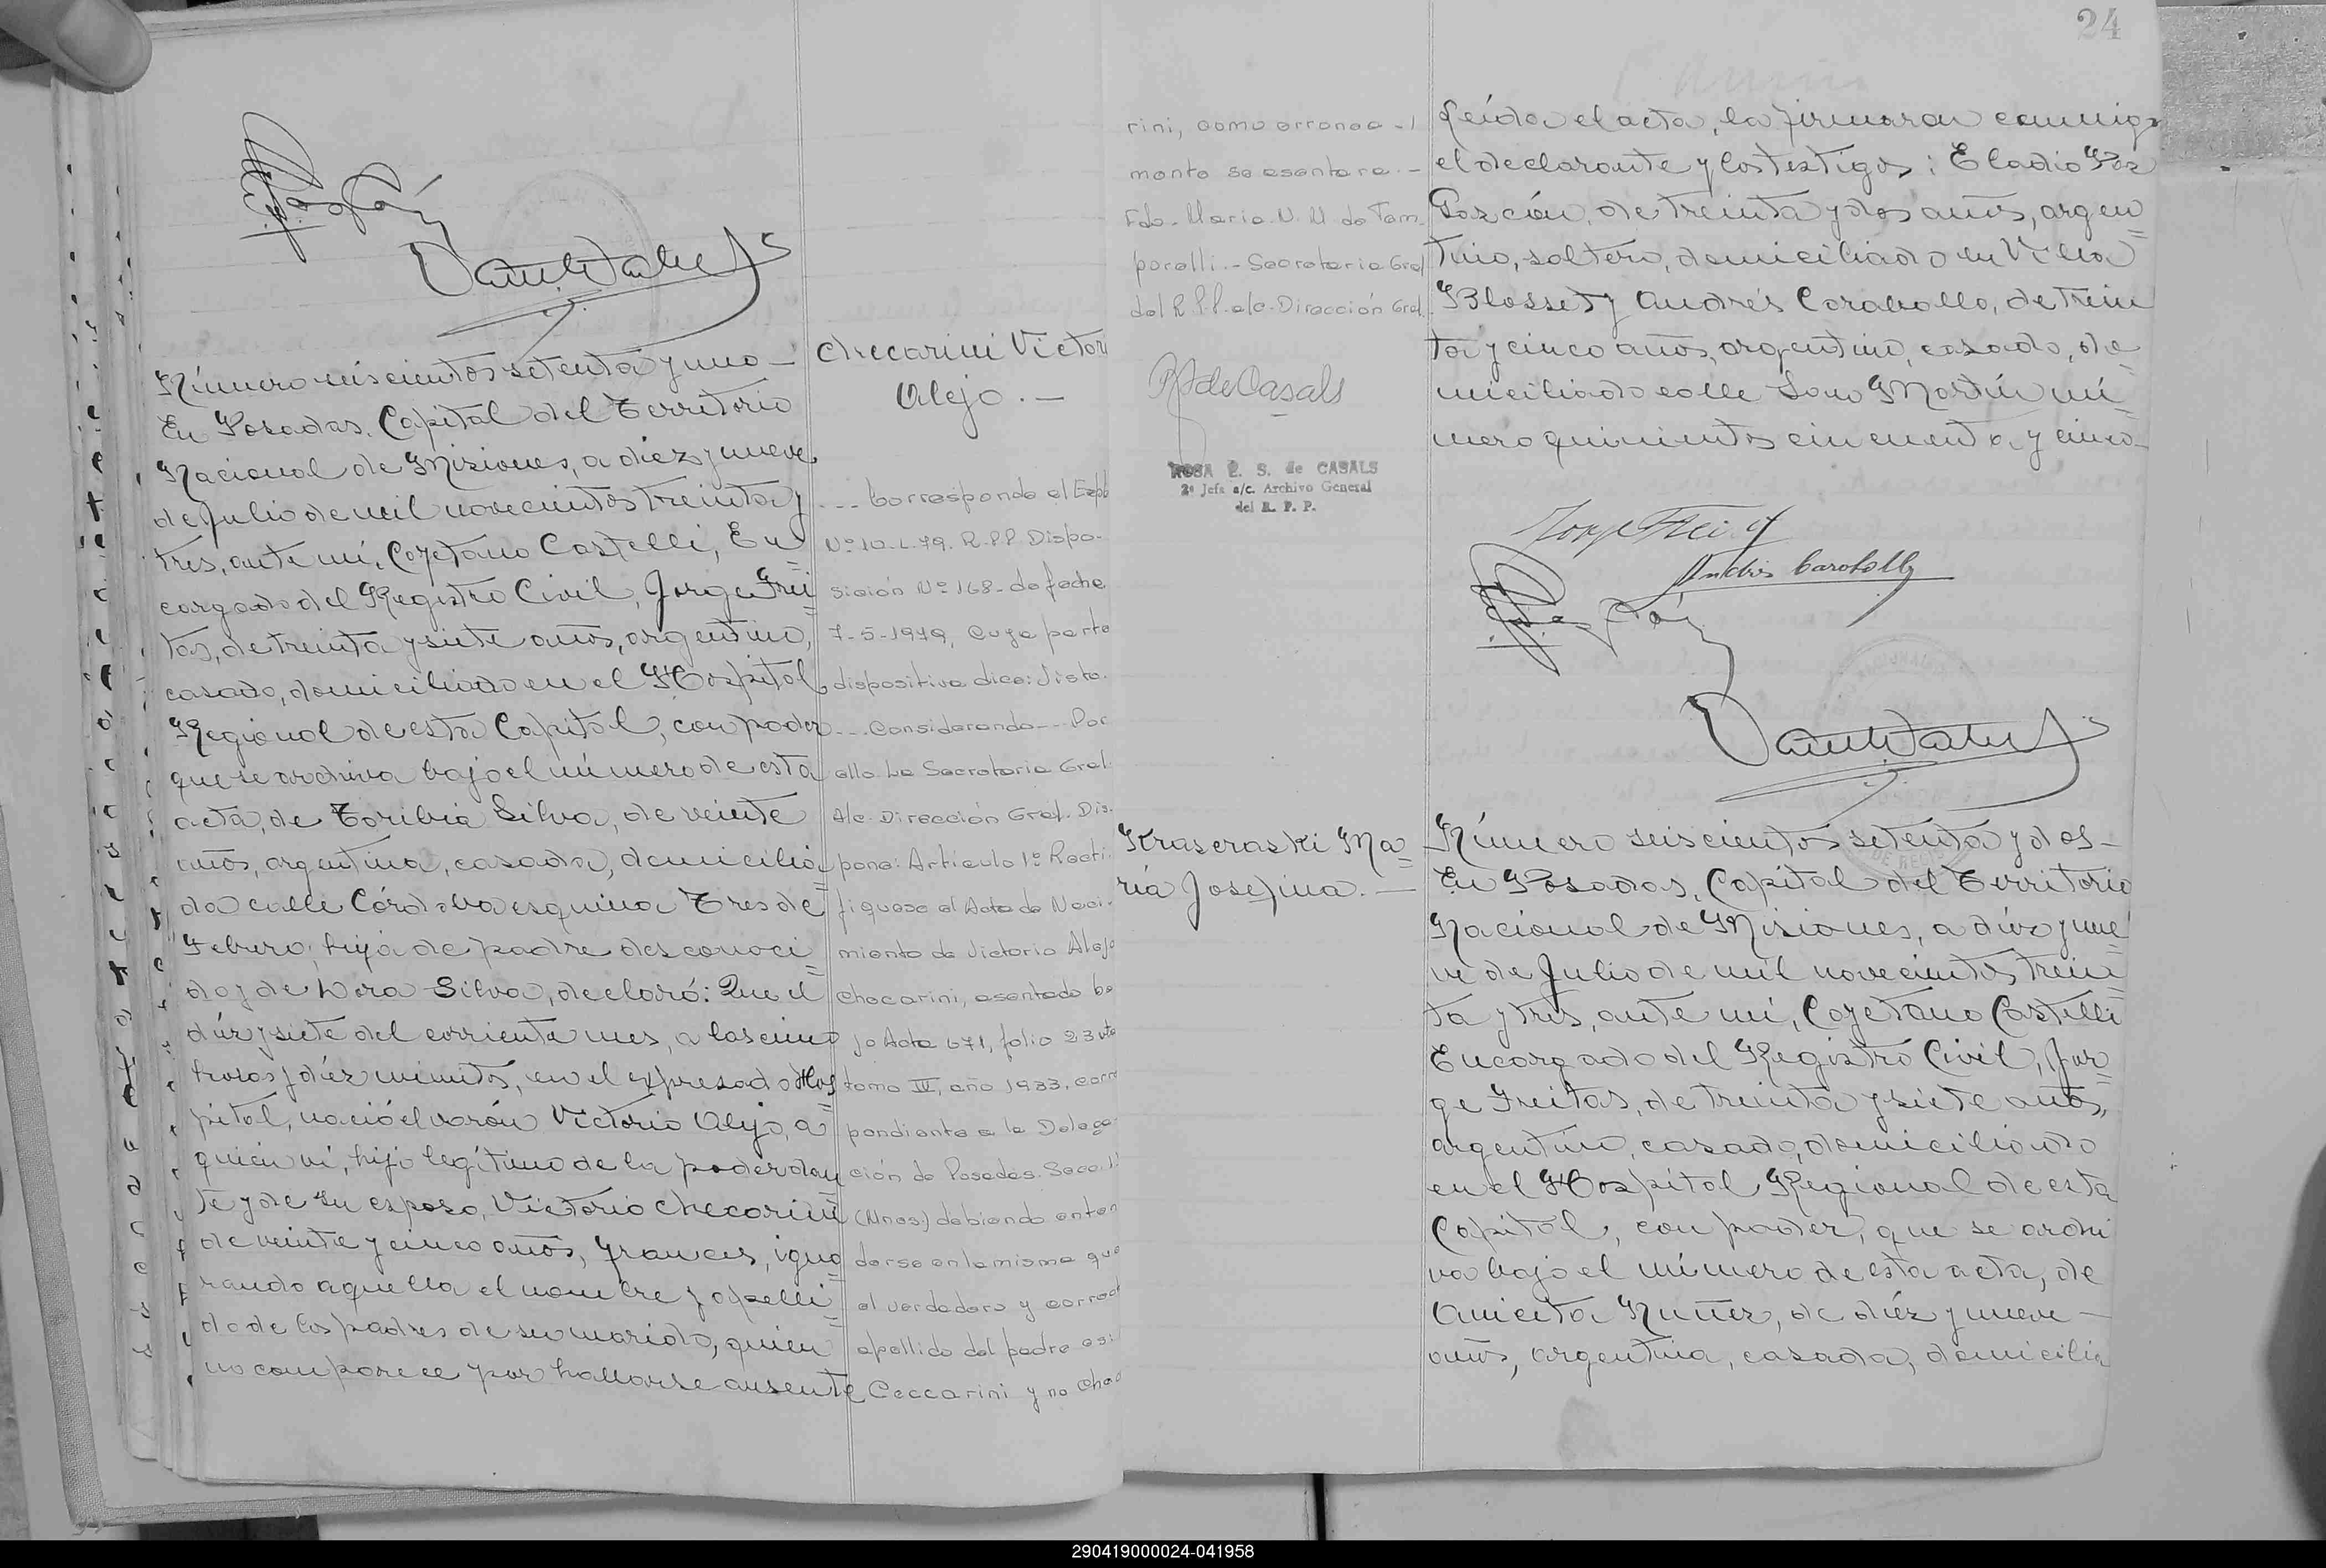 24
Número seiscientos setenta y uno-
En Posadas, Capital del Territorio
Nacional de Misiones, a diez y nueve
de Julio de mil novecientos treinta y
tres, ante mí, Cayetano Castelli, En=
cargado del Registro Civil, Jorge Frei=
tas, de treinta y siete años, argentino,
casado, domiciliado en el Hospital
Regional de esta Capital, con poder
que se archiva bajo el número de esta
acta, de Toribia Silva, de veinte
años, argentina, casada, domicilia=
da calle Córdoba esquina Tres de
Febrero, hija de padre desconoci=
do y de Dora Silva, declaró: Que el
diéz y siete del corriente mes, a las cinco
horas y diéz minutos, en el expresado Hos=
pital, nació el varón Victorio Alejo, a
quien ví, hijo legítimo de la poderdan=
te y de su esposo, Victorio Checarini
de veinte y cinco años, francés, igno=
rando aquella el nombre y apelli=
do de los padres de su marido, quien
no comparece por hallarse ausente
Checarini Victori
Alejo.-
--- Corresponde al Expte
Nº 10-L-79. R.P.P. Dispo-
sición Nº 168- de fecha
7-5-1979, cuya parte
dispositiva dice: Visto.
--- Considerando --- Por
ello La Secretaria Gral.
A/c. Dirección Gral. Dis.
pone: Artículo 1º Recti.
fíquese el Acta de Naci.
miento de Victorio Alejo
Checarini, asentado ba
jo Acta 671, folio 23 vto
tomo IV, año 1933, corre
pondiente a la Delega
ción de Posadas. Secc. 1ª
(Mnes.) debiendo enten
derse en la misma que
el verdadero y correct
apellido del padre es:
Ceccarini y no Chec
rini, como erronea -
mente se asentara. -
Fdo- Maria N. N. de Tam
porelli.- Secretaria Gral
del R.P.P. a/c. Dirección Gral.
R P de Casals
ROSA E. S. de CASALS
2ª Jefa a/c. Archivo General
del R. P. P.
Leída el acta, la firmaron conmigo
el declarante y los testigos: Eladio Paz
Garzón, de treinta y dos años, argen=
tino, soltero, domiciliado en Villa
Blosset y Andrés Caraballo, de trein
ta y cinco años, argentino, casado, do=
miciliado calle San Martín nú=
mero quinientos cincuenta y cinco-
Jorge Freitas
Andrés Caraballo
Kraseraski Ma=
ría Josefina.-
Número seiscientos setenta y dos-
En Posadas, Capital del Territorio
Nacional de Misiones, a diez y nue=
ve de Julio de mil novecientos trein=
ta y tres, ante mí, Cayetano Castelli
Encargado del Registro Civil, Jor=
ge Freitas, de treinta y siete años,
argentino, casado, domiciliado
en el Hospital Regional de esta
Capital, con poder, que se archi
va bajo el número de esta acta, de
Anicéta Nuñez, de diéz y nueve-
años, argentina, casada, domicilia
290419000024-041958